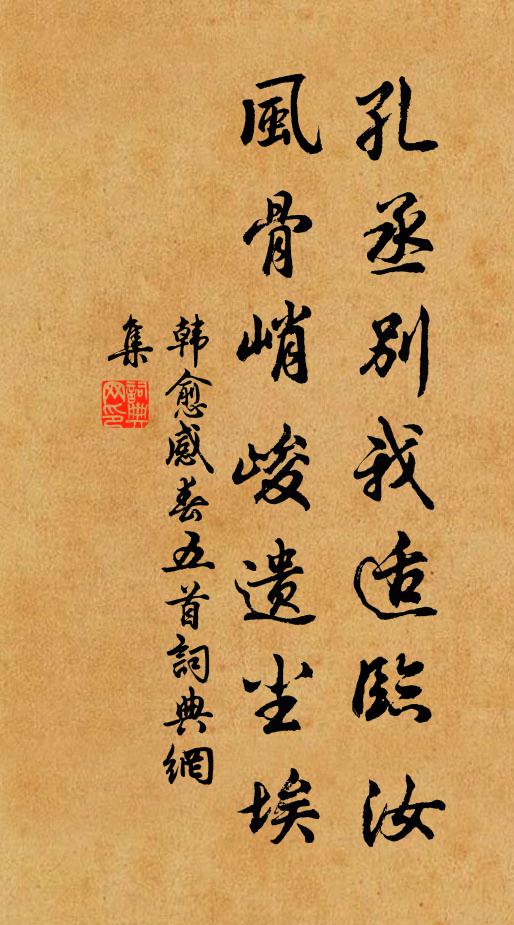 孔丞别我适臨汝
風骨峭峻遗尘埃
韩愈感春五首詞典網
集
詞典网印